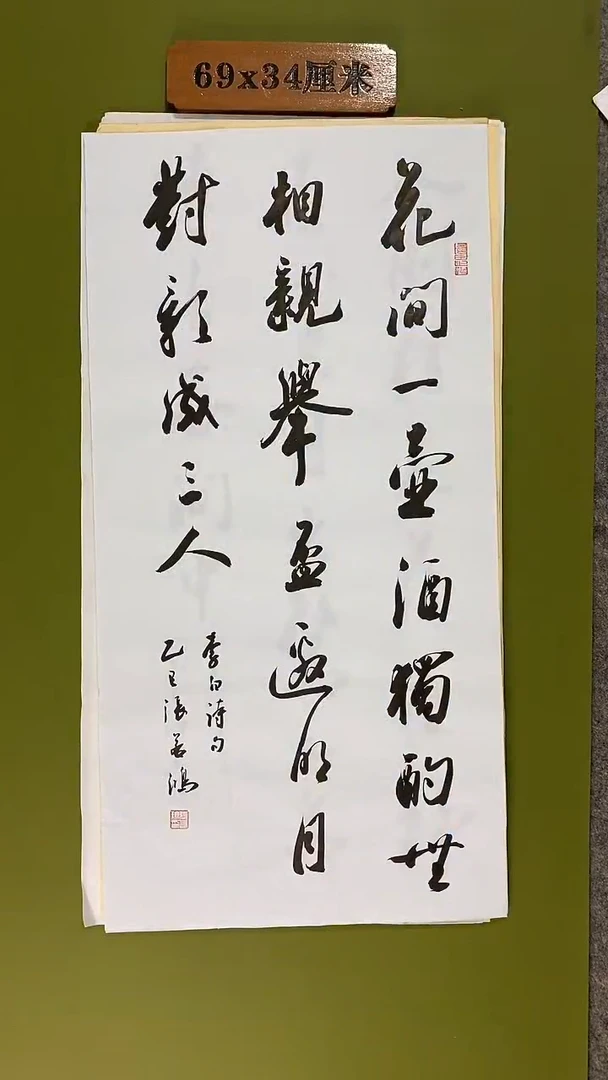 69x34厘米
花間一壺酒獨酌無
相親舉盃邀明月
對影成三人
李白詩句
乙巳張若鴻